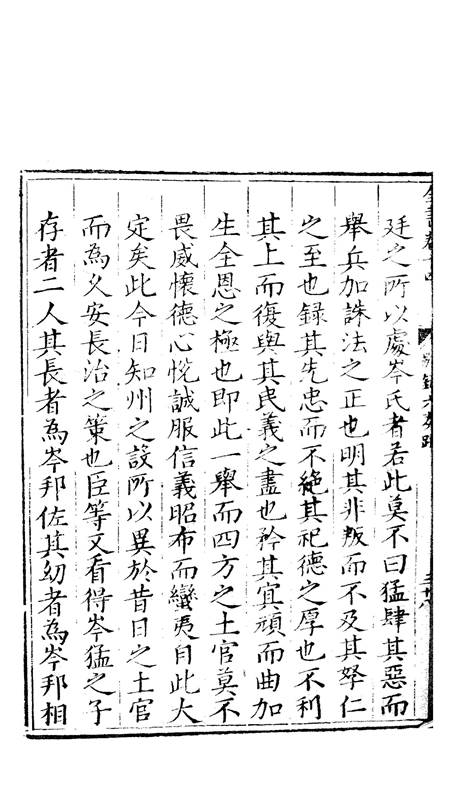 廷之所以處岑氏者若此莫不曰猛肆其惡而
舉兵加誅法之正也明其非叛而不及其孥仁
之至也録其先忠而不絶其祀德之厚也不利
其上而復與其民義之盡也矜其冥頑而曲加
生全恩之極也即此一舉而四方之土官莫不
畏威懷德心悅誠服信義昭布而蠻夷自此大
定矣此今日知州之設所以異於昔日之土官
而為久安長治之策也臣等又看得岑猛之子
存者二人其長者為岑邦佐其幼者為岑邦相